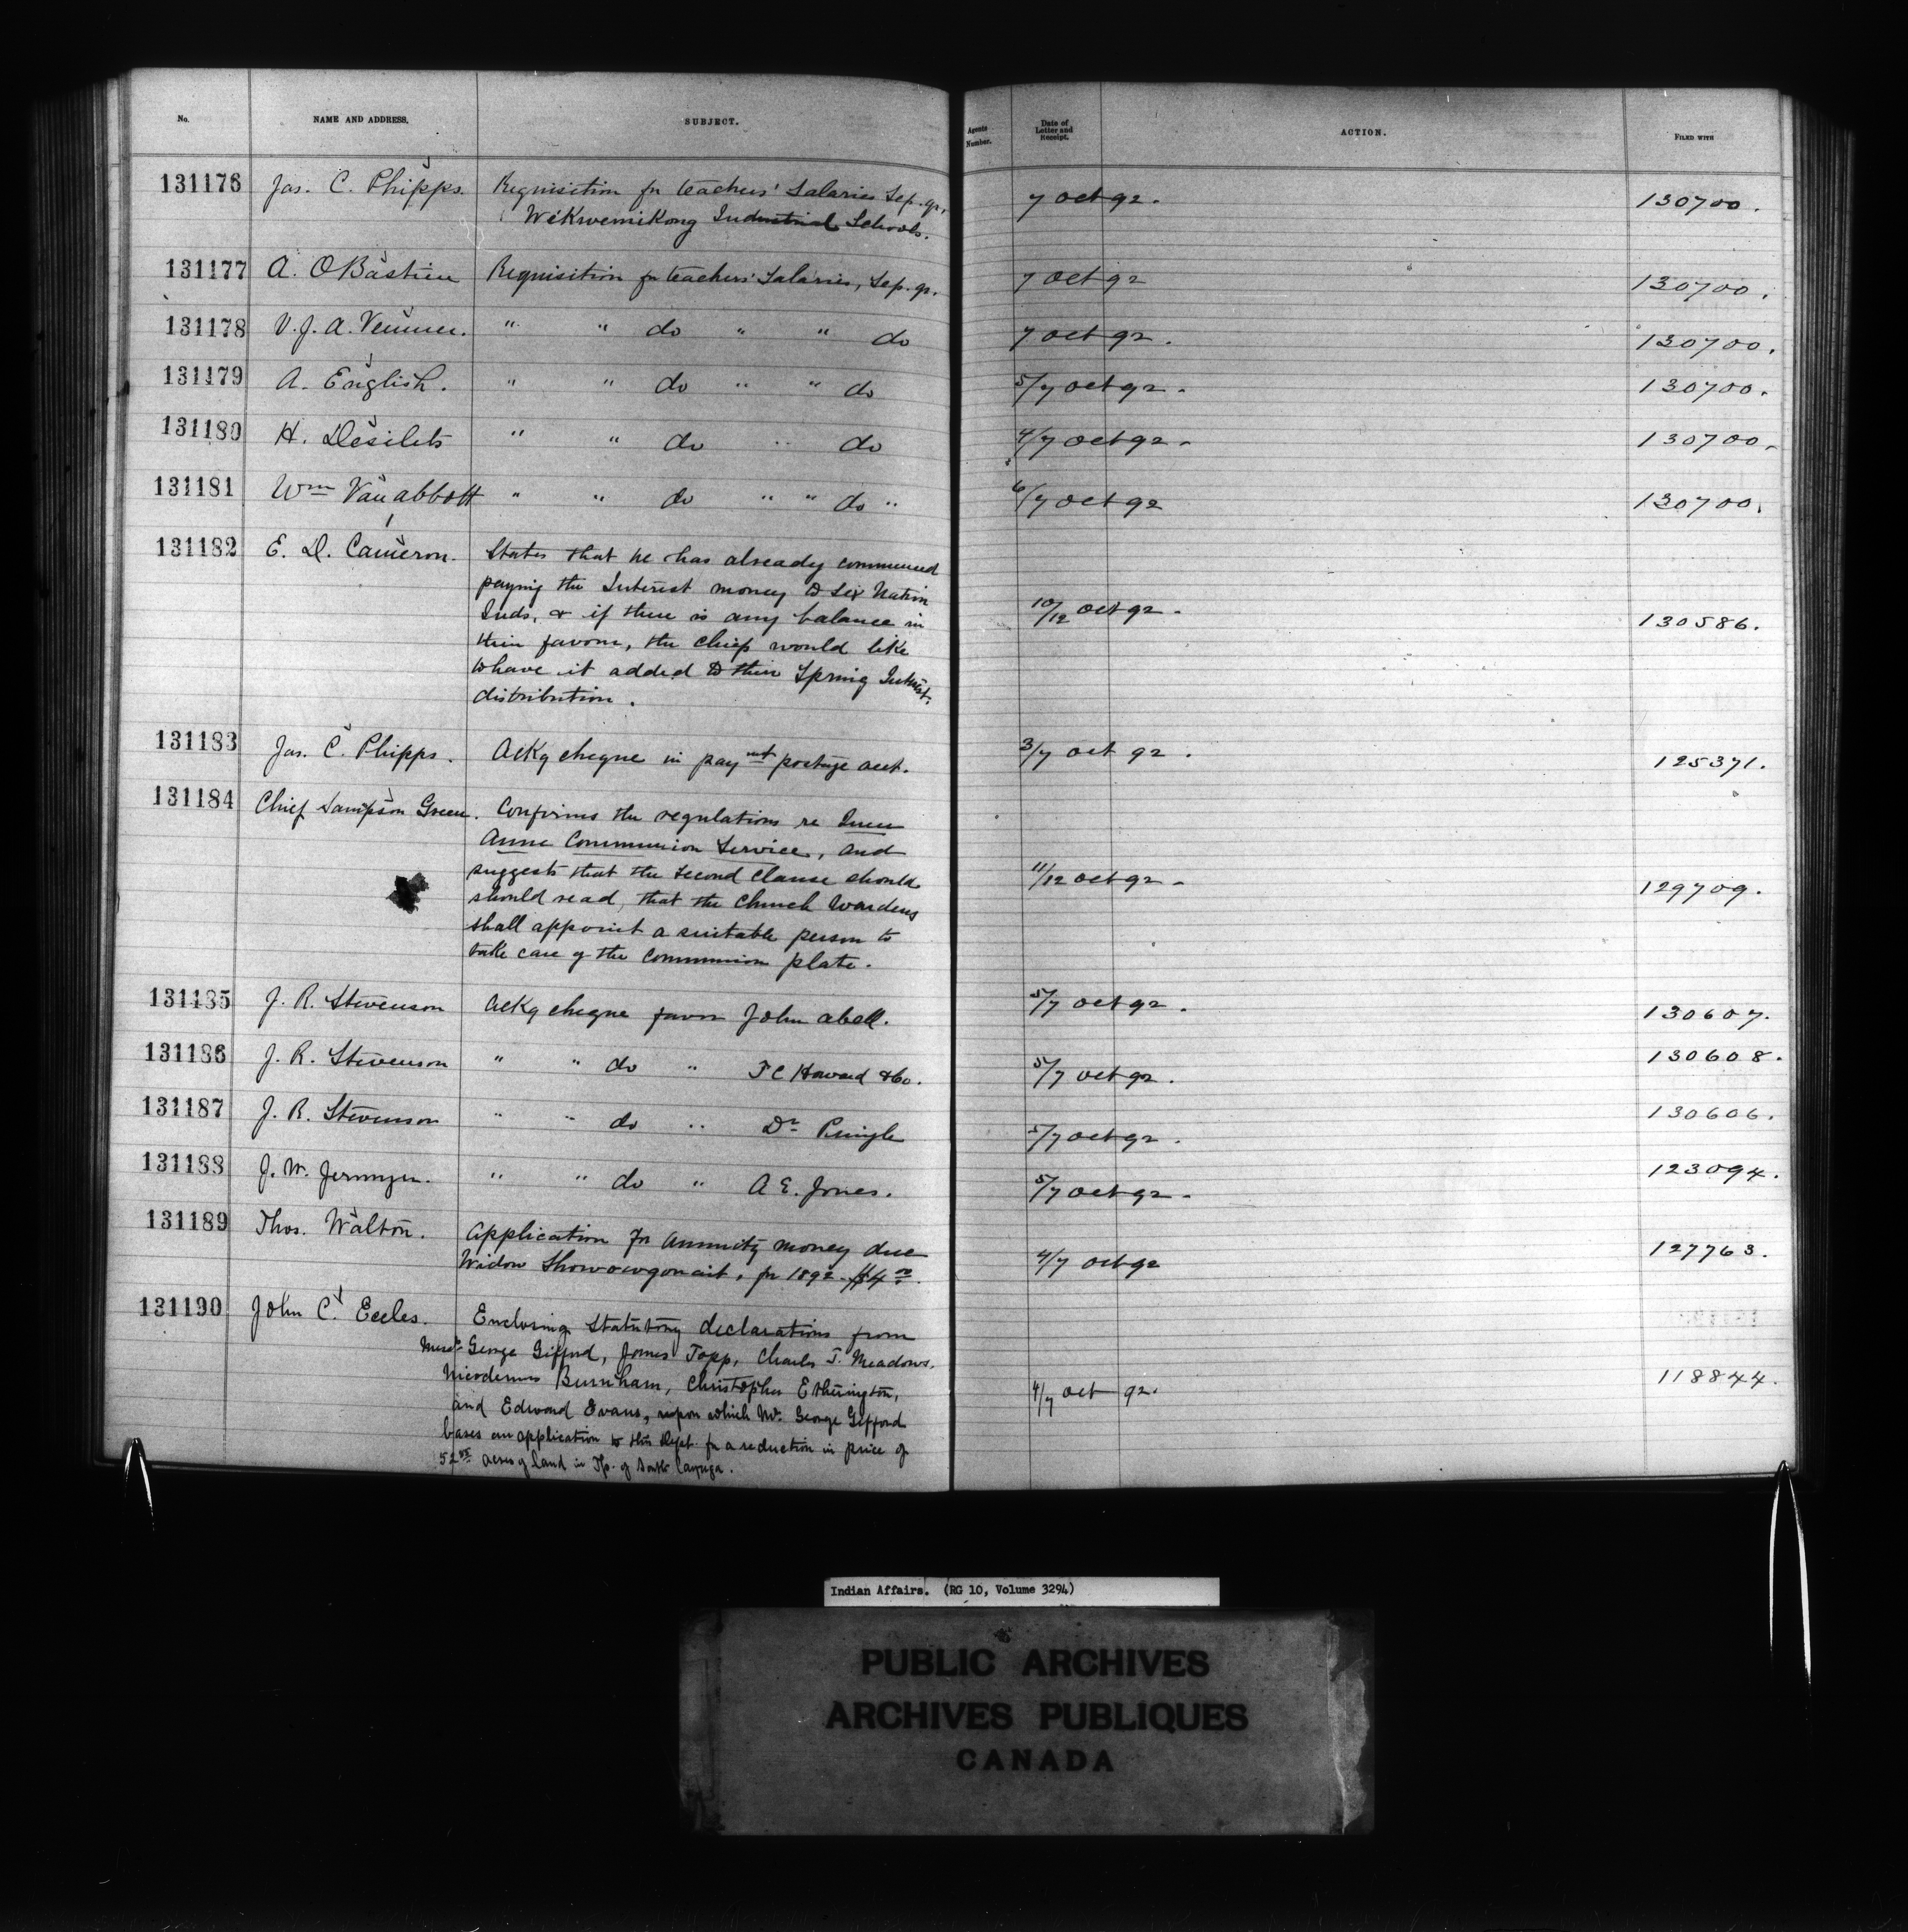 No. NAME AND ADDRESS. SUBJECT. Agents Number. Date of Letter and Receipt. ACTION. FILED WITH
131176 Jas. C. Phipps. Requisition for teachers' Salaries Sep. qr. 7 Oct 92. 130700.
Wikwemikong Industrial Schools.
131177 A. O Bastien Requisition for teachers' Salaries, Sep. qr. 7 Oct 92 130700.
131178 V. J. A. Venner. " " do " " do 7 Oct 92. 130700.
131179 A. English. " " do " " do 5/7 Oct 92. 130700.
131180 H. Désilets " " do " do 4/7 Oct 92. 130700.
131181 Wm Van abbott " " do " " do " 6/7 Oct 92 130700.
131182 E. D. Cameron. States that he has already commenced
paying the Interest money to Six Nation
Inds. & if there is any balance in 10/12 Oct 92. 130586.
their favour, the chiefs would like
to have it added to their Spring Interest
distribution.
131183 Jas. C. Phipps. Ackg cheque in paymt postage acct. 3/7 Oct 92. 125371.
131184 Chief Sampson Green. Confirms the regulations re Queen
Anne Communion Service, and
suggests that the second clause should 11/12 Oct 92. 129709.
should read, that the Church Wardens
shall appoint a suitable person to
take care of the Communion plate.
131185 J. R. Stevenson Ackg cheque favor John Abell. 5/7 Oct 92. 130607.
131186 J. R. Stevenson " " do " T C Howard & Co. 5/7 Oct 92. 130608.
131187 J. R. Stevenson " " do " Dr Pringle 5/7 Oct 92. 130606.
131188 J. W. Jermyn. " " do " A E. Jones. 5/7 Oct 92. 123094.
131189 Thos. Walton. Application for annuity money due
Widow for 1892 $4 00. 4/7 Oct 92 127763.
131190 John C. Eccles. Enclosing Statutory declarations from
Messrs George Gifford, James Topp, Charles T. Meadows,
Nicodemus Burnham, Christopher Etherington, 4/7 Oct 92. 118844.
and Edward Evans, upon which Mr. George Gifford
bases an application to this Dept. for a reduction in price of
52 acres of land in Tp. of South Cayuga.
Indian Affairs. (RG 10, Volume 3294)
PUBLIC ARCHIVES
ARCHIVES PUBLIQUES
CANADA